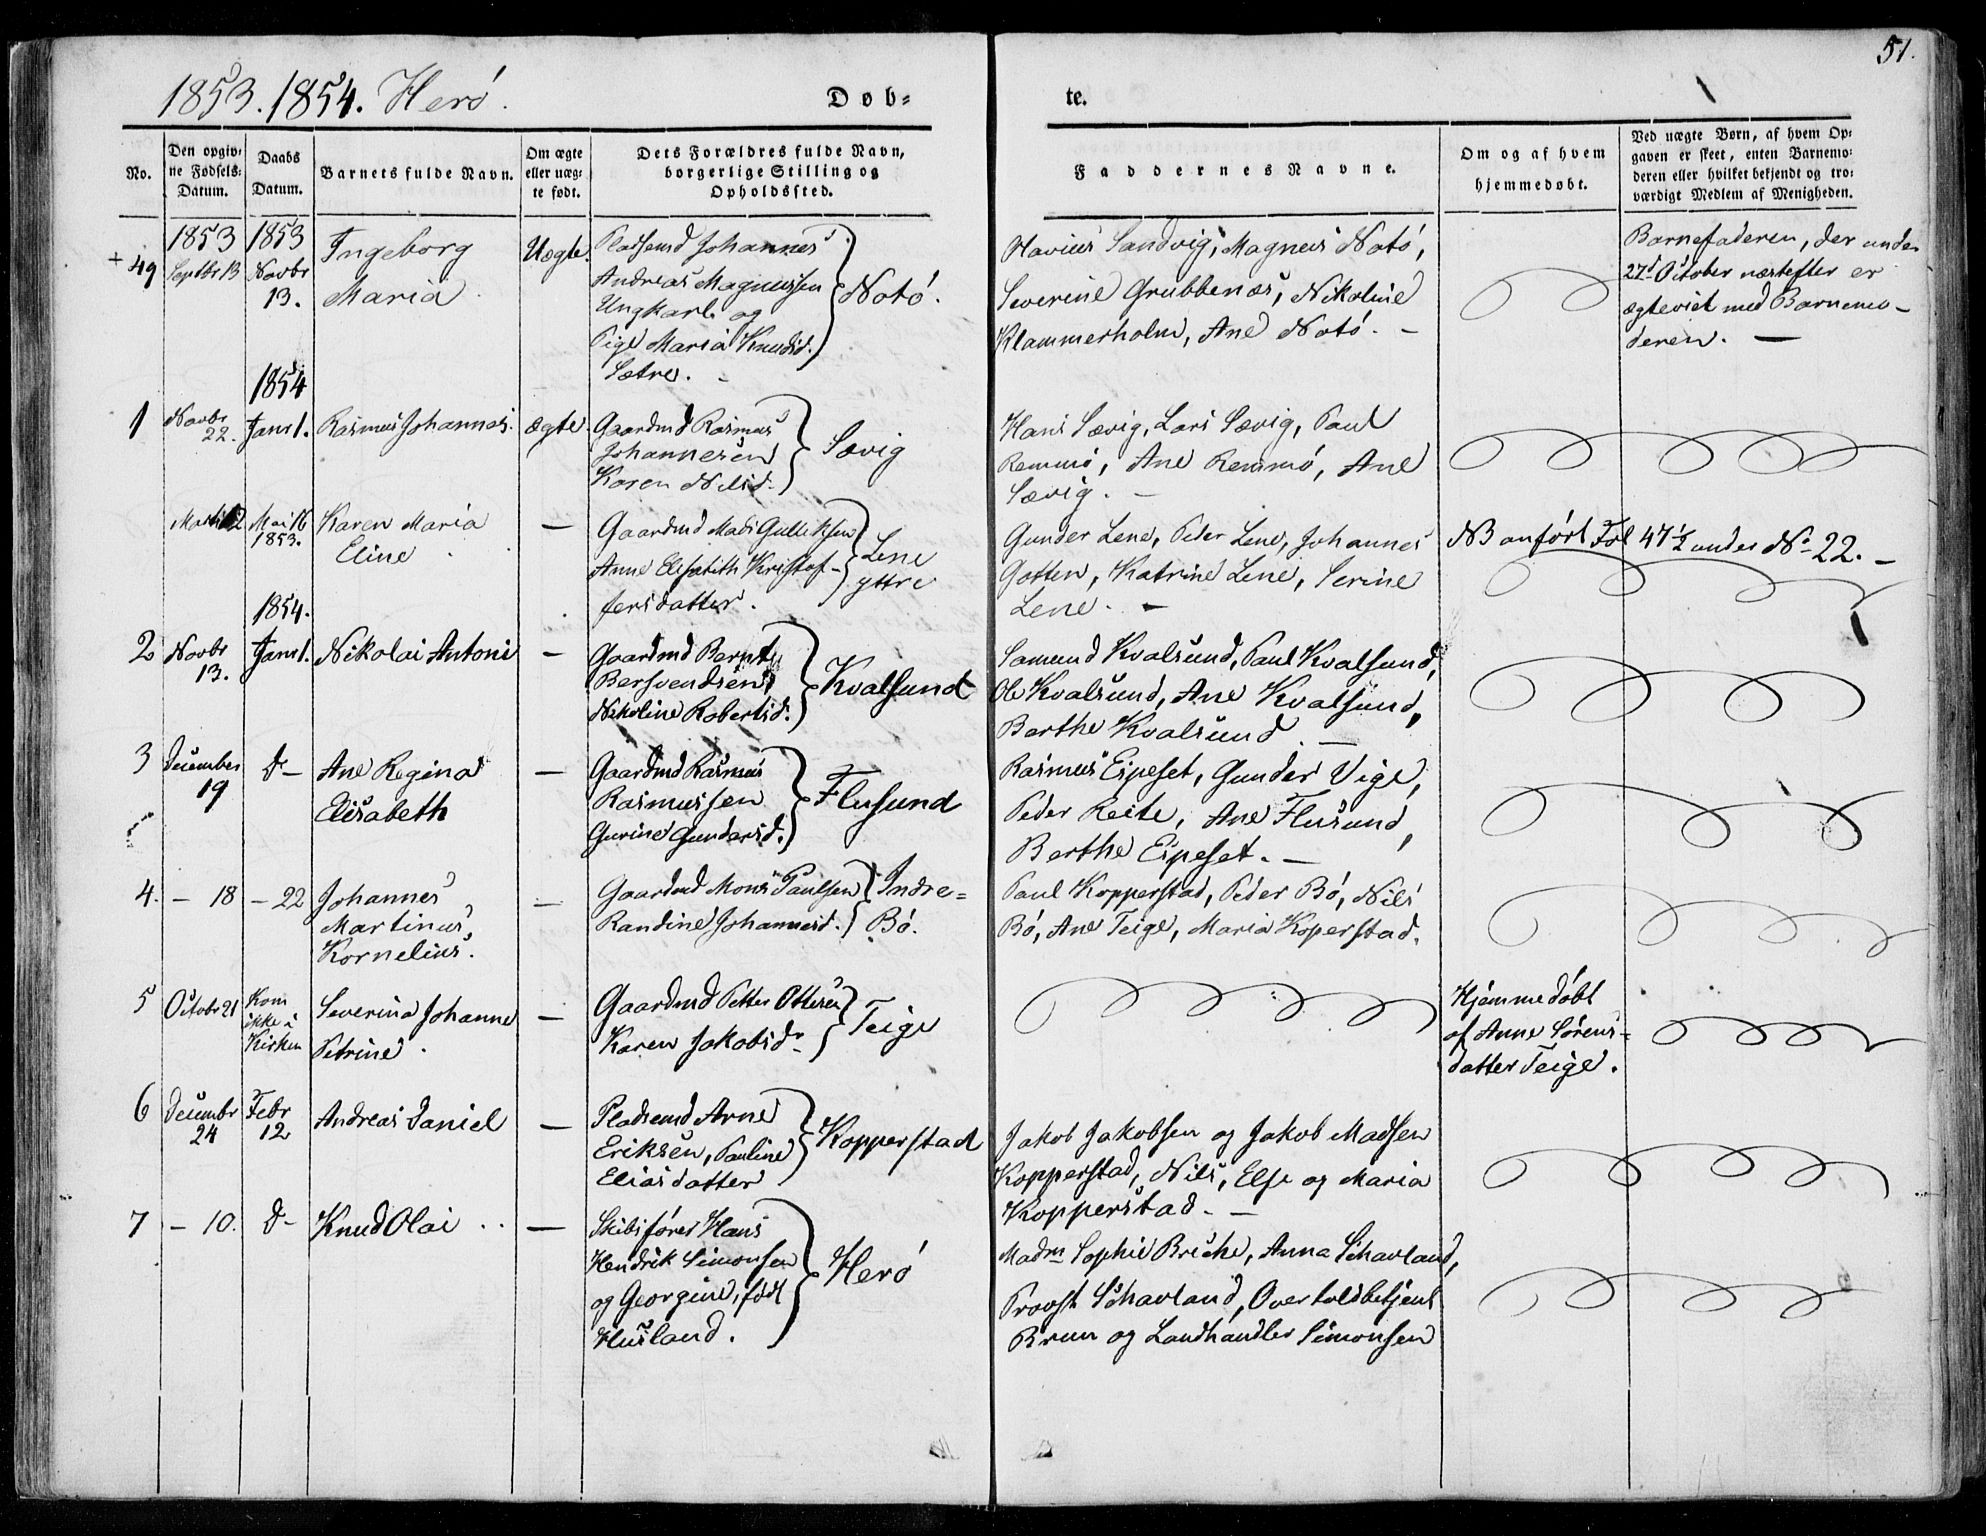 51.
1853. 1854. Herö.
Døb-
te.
No.
Den opgiv-
ne Fødsels-
Datum.
Daabs
Datum.
Barnets fulde Navn.
Om ægte
eller uæg-
te født.
Dets Forældres fulde Navn,
borgerlige Stilling og
Opholdssted.
Faddernes Navne.
Om og af hvem
hjemmedøbt.
Ved uægte Børn, af hvem Op-
gaven er skeet, enten Barnemo-
deren eller hvilket bekjendt og tro-
værdigt Medlem af Menigheden.
+ 49
1853
Septbr 13
1853
Novbr
13.
Ingeborg
Maria
Uægte.
Pladsemd Johannes
Andreas Magnussen
Ungkarl og
Pige Maria Knudsd.
Sætre.
Notö.
Olavius Sandvig, Magnus Notö,
Severine Grubbenæs, Nikoline
Klammerholm, Ane Notö. -
Barnefaderen, der under
27d October næstefter er
ægteviet med Barnemo-
deren. -
1
Novbr
22.
1854
Janr 1.
Rasmus Johannes.
Ægte.
Gaardmd Rasmus
Johannesen
Karen Nilsd.
Sævig
Hans Sævig, Lars Sævig, Paul
Remmö, Ane Remmö, Ane
Sævig. -
Marts 12
Mai 16
1853.
Karen Maria
Eline
-
Gaardmd Mads Gulliksen
Anne Elisabeth Kristof-
fersdatter.
Lene
yttre
Gunder Lene, Peder Lene, Johannes
Gotten, Katrine Lene, Serine
Lene. -
NB anfört Fol 47 1/2 under No 22. -
2
Novbr
13.
1854.
Janr 1.
Nikolai Antoni
-
Gaardmd Bernt
Bersvendsen,
Nikoline Robertsd.
Kvalsund
Samund Kvalsund, Paul Kvalsund,
Ole Kvalsund, Ane Kvalsund,
Berthe Kvalsund. -
3
December
19
D-
Ane Regina
Elisabeth
-
Gaardmd Rasmus
Rasmussen
Gurine Gundersd.
Flusund
Rasmus Eipeset, Gunder Vige,
Peder Reite, Ane Flusund,
Berthe Eipeset. -
4.
- 18
- 22
Johannes
Martinus,
Kornelius.
-
Gaardmd Mons Paulsen
Randine Johannesd.
Indre-
Bö.
Paul Kopperstad, Peder Bö, Nils
Bö, Ane Teige, Maria Koperstad.
5
Octobr 21
Kom
ikke i
Kirken
Severina Johanne
Petrine.
-
Gaardmd Petter Ottesen
Karen Jakobsdr
Teige
Hjemmedöbt
af Anne Sörens-
datter Teige.
6
Decembr
24
Febr
12
Andreas Daniel
-
Pladsemd Arne
Eriksen, Pauline
Eliasdatter
Kopperstad
Jakob Jakobsen og Jakob Madsen
Kopperstad, Nils, Else og Maria
Kopperstad. -
7
- 10.
D-
Knud Olai
-
Skibsförer Hans
Hendrik Simonsen
og Georgine, född
Husland.
Herö
Madm Sophie Briche, Anna Schavland,
Provst Schavland, Overtoldbetjent
Brun og Landhandler Simonsen